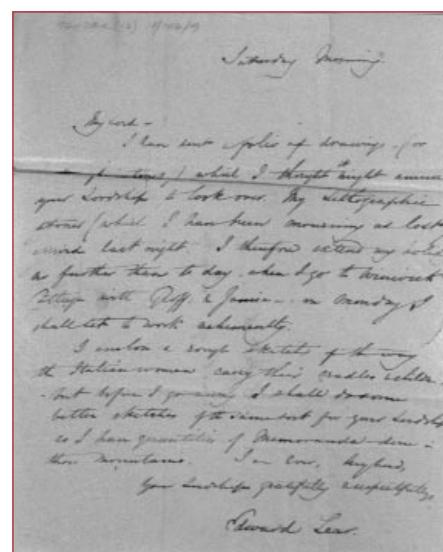 Saturday Morning.
My Lord —
I have sent a folio of drawings — (or
) which I thought might amuse
your Lordship to look over. My Lithographic
stones (which I have been mourning as lost
arrived last night. I therefore extend my
no further than to day — when I go to
with & — on Monday I
shall set to work vehemently.
I enclose a rough sketch of the way
the Italian women carry their cradles & children
— but before I go away I shall do some
better sketches of the same sort for your Lordship
as I have quantities of Memoranda done in
those mountains. I am ever, my Lord,
Your Lordships gratefully & respectfully,
Edward Lear.